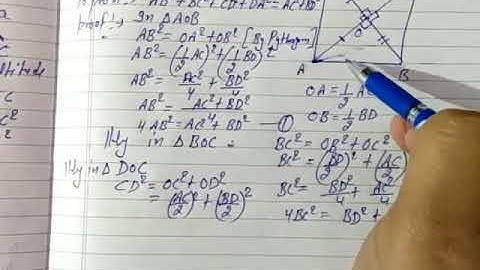 AB² + BC² + CD² + DA² = AC² + BD²
proof:- In ΔAOB
AB² = OA² + OB² [By Pythagoras]
AB² = (1/2 AC)² + (1/2 BD)²
AB² = AC²/4 + BD²/4
AB² = AC² + BD²/4
4AB² = AC² + BD² — ①
|||ly in ΔBOC
|||ly in ΔDOC
CD² = OC² + OD²
= (AC/2)² + (BD/2)²
O
A
B
OA = 1/2 AC
OB = 1/2 BD
BC² = OB² + OC²
BC² = (BD/2)² + (AC/2)²
BC² = BD²/4 + AC²/4
4BC² = BD² +